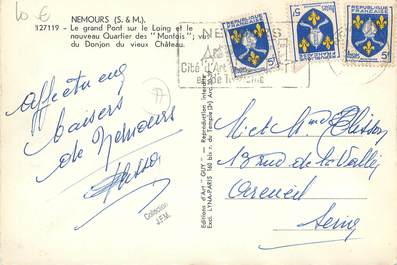 10 €
NEMOURS (S. & M.).
127119 - Le grand Pont sur le Loing et le
nouveau Quartier des "Montois";
du Donjon du vieux Château.
Affectueux
baisers
de Nemours
Plisson
Collection
J.F.M.
Editions d'Art "GUY" - Reproduction interdite
Excl. LYNA-PARIS 160 bis r. du Temple (3e Arr.)
NEMOURS
Cité d'Art
et de Tourisme
REPUBLIQUE
FRANÇAISE
5F
REPUBLIQUE
FRANÇAISE
5F
REPUBLIQUE
FRANÇAISE
5F
M. et Mme Plisson
13 rue de la Vallée
Arcueil
Seine